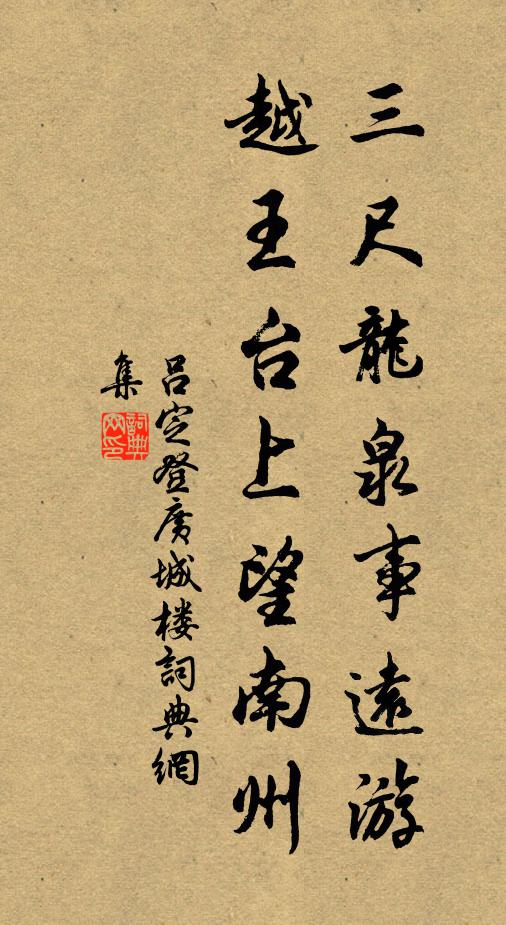 三尺龍泉事遠游
越王台上望南州
吕定登广城楼詞典網
集
詞典网印